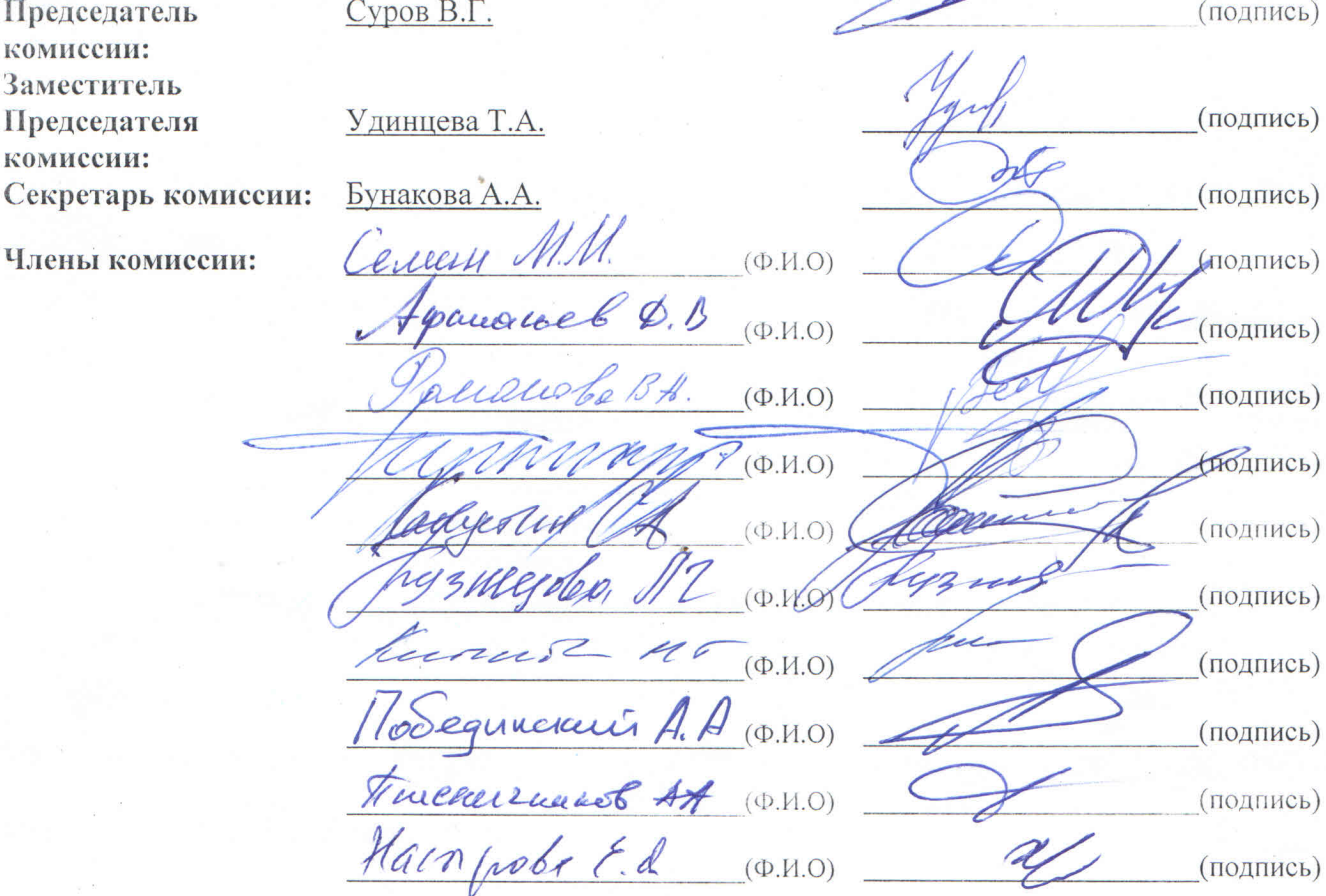 Председатель Суров В.Г. (подпись)
комиссии:
Заместитель
Председателя Удинцева Т.А. (подпись)
комиссии:
Секретарь комиссии: Бунакова А.А. (подпись)
Члены комиссии: Семан М.М. (Ф.И.О) (подпись)
Афанасьев Ф.В (Ф.И.О) (подпись)
Романова В.А. (Ф.И.О) (подпись)
(Ф.И.О) (подпись)
(Ф.И.О) (подпись)
Кузнецова (Ф.И.О) (подпись)
(Ф.И.О) (подпись)
Побединский А.А (Ф.И.О) (подпись)
Пшеничников АА (Ф.И.О) (подпись)
(Ф.И.О) (подпись)